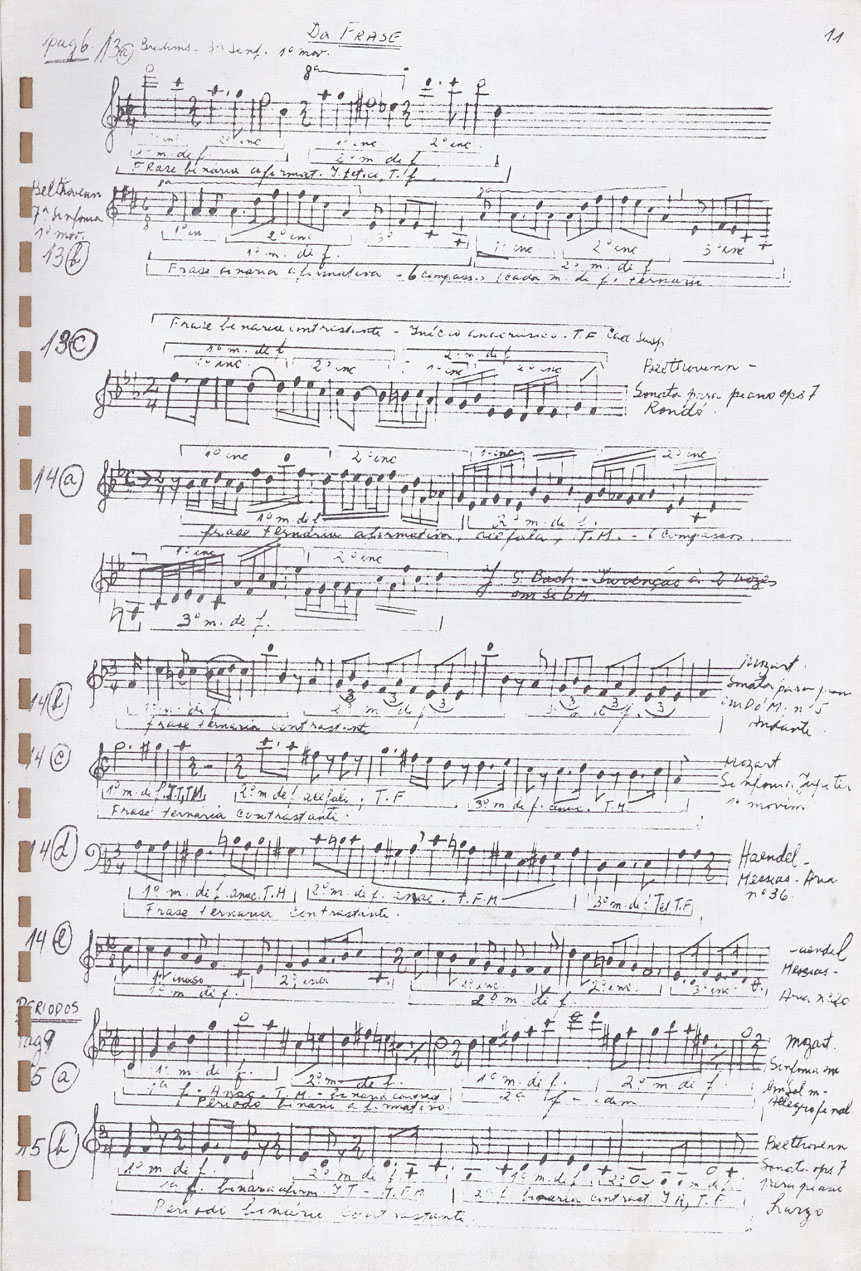 Da FRASE
11
pag 6. 13a Brahms - 3ª Sinf. 1º mov.
8ª
1º inc 2º inc 1º inc 2º inc
1º m. de f 2º m. de f
Frase binaria afirmat. I. tetico, T. f.
Beethovenn
7ª Sinfonia
1º mov.
13b
8ª
1º in 2º inc 3º 1º inc 2º inc 3º inc
1º m. de f. 2º m. de f
Frase binaria afirmativa - 6 compassos (cada m. de f. ternario
13c
Frase binaria contrastante - Início anacrusico - T. F Cad. Susp.
1º m. de f 2º m. de f
1º inc 2º inc 1º inc 2º inc
Beethovenn -
Sonata para piano ops 7
Rondó.
14a
1º inc 2º inc 1º inc 2º inc
1º m. de f 2º m. de f.
frase ternária afirmativa, acéfala, T. M. - 6 compassos
1º inc 2º inc
3º m. de f.
J. S. Bach - Invenção à 2 vozes
em Si b M
14b
3 3 3 3 3 3
2º m. de f
frase ternaria contrastante
Mozart.
Sonata para pian
in Dó M. nº 5
Andante
14c
1º m. de f 2º m. de f acéfalo, T. F 3º m. de f. anac. T. M
Frase ternaria contrastante.
Mozart
Sinfonia Jupiter
1º movim
14d
1º m. de f. anac. T. M 2º m. de f. anac. T. F. M 3º m. de f Tet T. F
Frase ternaria contrastante.
Haendel -
Messias - Aria
nº 36
14e
1º inciso 2º inciso 1º inc 2º inc. 3º inc.
1º m. de f. 2º m. de f.
aendel
Messias -
Aria nº 20
PERIODOS
pag 9
15a
1º m. de f. 2º m. de f. 1º m. de f. 2º m. de f.
1ª f - Anac. T. M - binaria contras 2ª f - idem
Período binário afirmativo
Mozart.
Sinfonia in
em sol m -
Allegro final
15b
1º m. de f. 2º m. de f. 1º m. de f. 2º
1ª f. binaria afirm I T - T. F. M 2ª f binaria contrast I A, T. F
Período binário contrastante
Beethovenn
Sonata ops 7
para piano
Largo